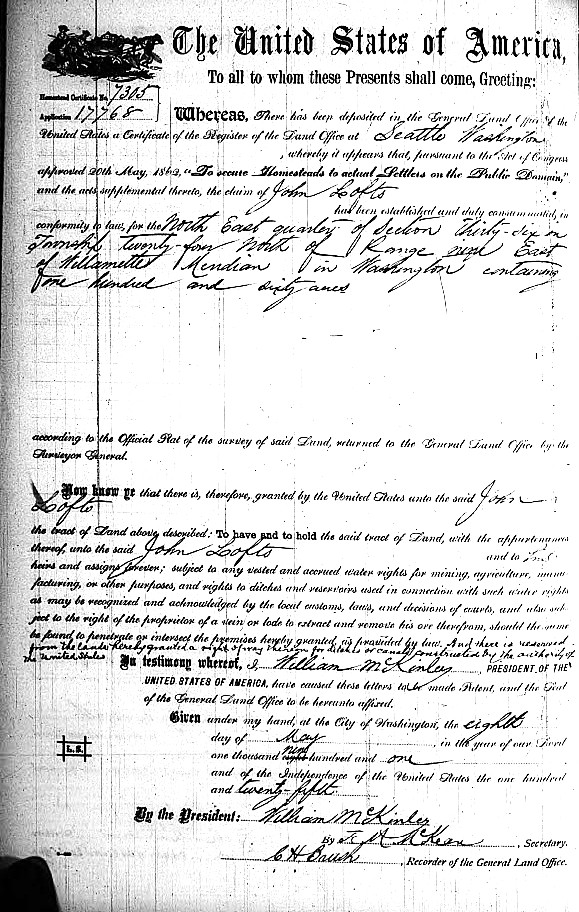 The United States of America,
To all to whom these Presents shall come, Greeting:
Homestead Certificate No. 7305
Application 17768
Whereas, There has been deposited in the General Land Office of the
United States a Certificate of the Register of the Land Office at Seattle Washington
, whereby it appears that, pursuant to the Act of Congress
approved 20th May, 1862, "To secure Homesteads to actual Settlers on the Public Domain,"
and the acts supplemental thereto, the claim of John Lofts
has been established and duly consummated, in
conformity to law, for the North East quarter of Section thirty-six in
Township twenty-four North of Range five East
of Willamette Meridian in Washington containing
one hundred and sixty acres
according to the Official Plat of the survey of said Land, returned to the General Land Office by the
Surveyor General.
Now know ye that there is, therefore, granted by the United States unto the said John
Lofts
the tract of Land above described: To have and to hold the said tract of Land, with the appurtenances
thereof, unto the said John Lofts and to his
heirs and assigns forever; subject to any vested and accrued water rights for mining, agriculture, manu-
facturing, or other purposes, and rights to ditches and reservoirs used in connection with such water rights
as may be recognized and acknowledged by the local customs, laws, and decisions of courts, and also sub-
ject to the right of the proprietor of a vein or lode to extract and remove his ore therefrom, should the same
be found to penetrate or intersect the premises hereby granted, as provided by law. And there is reserved
from the lands hereby granted a right of way thereon for ditches or canals constructed by the authority of
the United States
In testimony whereof, I William McKinley, PRESIDENT OF THE
UNITED STATES OF AMERICA, have caused these letters to be made Patent, and the Seal
of the General Land Office to be hereunto affixed.
Given under my hand, at the City of Washington, the eighth
day of May, in the year of our Lord
one thousand nine hundred and one
L.S.
and of the Independence of the United States the one hundred
and twenty-fifth
By the President: William McKinley
By F. M. McKean, Secretary.
C H Brush, Recorder of the General Land Office.